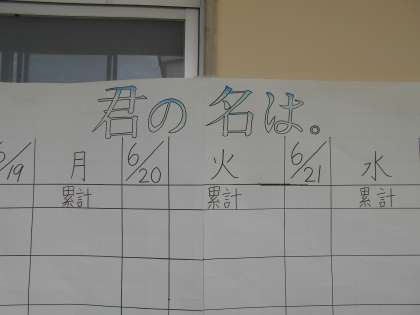 君の名は。
6/19 月 6/20 火 6/21 水
累計 累計 累計